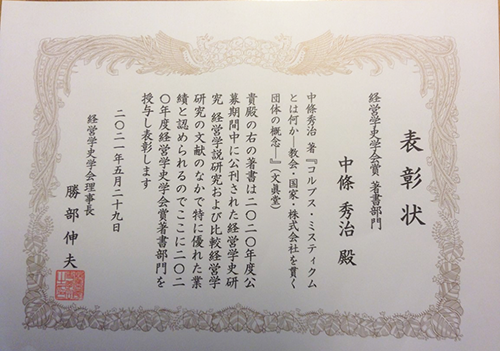 表彰状
経営学史学会賞 著書部門
中條 秀治 殿
中條秀治 著『コルプス・ミスティクム
とは何か―教会・国家・株式会社を貫く
団体の概念―』(文眞堂)
貴殿の右の著書は二〇二〇年度公
募期間中に公刊された経営学史研
究 経営学説研究および比較経営学
研究の文献のなかで特に優れた業
績と認められるのでここに二〇二
〇年度経営学史学会賞著書部門を
授与し表彰します
二〇二一年五月二十九日
経営学史学会理事長
勝部 伸夫